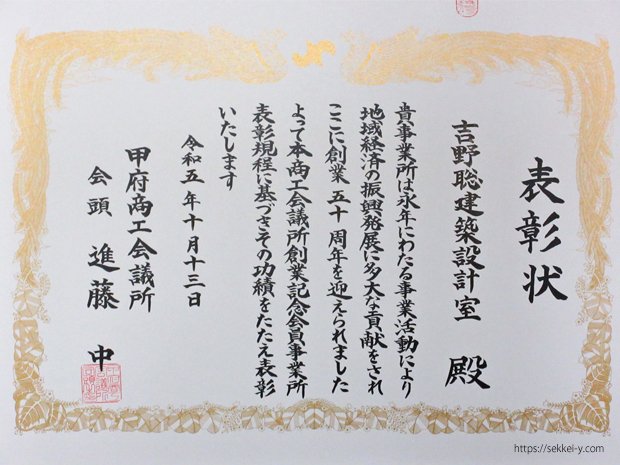 表彰状
吉野聡建築設計室 殿
貴事業所は永年にわたる事業活動により
地域経済の振興発展に多大な貢献をされ
ここに創業 五十 周年を迎えられました
よって本商工会議所創業記念会員事業所
表彰規程に基づきその功績をたたえ表彰
いたします
令和五年十月十三日
甲府商工会議所
会頭 進藤 中
https://sekkei-y.com